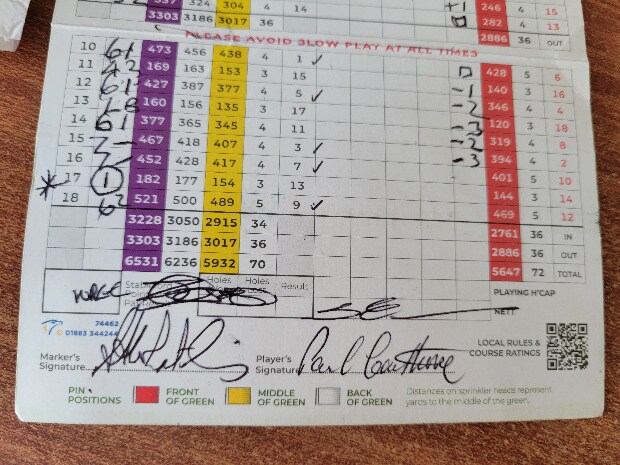 324 304 4 14 +1 246 4 15
282 4 13
3303 3186 3017 36 2886 36 OUT
PLEASE AVOID SLOW PLAY AT ALL TIMES
10 473 456 438 4 1 ✓ 428 5 6
11 169 163 153 3 15 -1 140 3 16
12 427 387 377 4 5 ✓ -2 346 4 4
13 160 156 135 3 17 -3 120 3 18
14 377 365 345 4 11 -2 319 4 8
15 467 418 407 4 3 ✓ -3 394 4 2
16 452 428 417 4 7 ✓ 401 5 10
17 1 182 177 154 3 13 144 3 14
18 521 500 489 5 9 ✓ 469 5 12
3228 3050 2915 34 2761 36 IN
3303 3186 3017 36 2886 36 OUT
6531 6236 5932 70 5647 72 TOTAL
Holes Holes Result
PLAYING H'CAP
NETT
74462
01883 344244
Marker's Signature
Player's Signature
LOCAL RULES & COURSE RATINGS
PIN POSITIONS FRONT OF GREEN MIDDLE OF GREEN BACK OF GREEN
Distances on sprinkler heads represent
yards to the middle of the green.